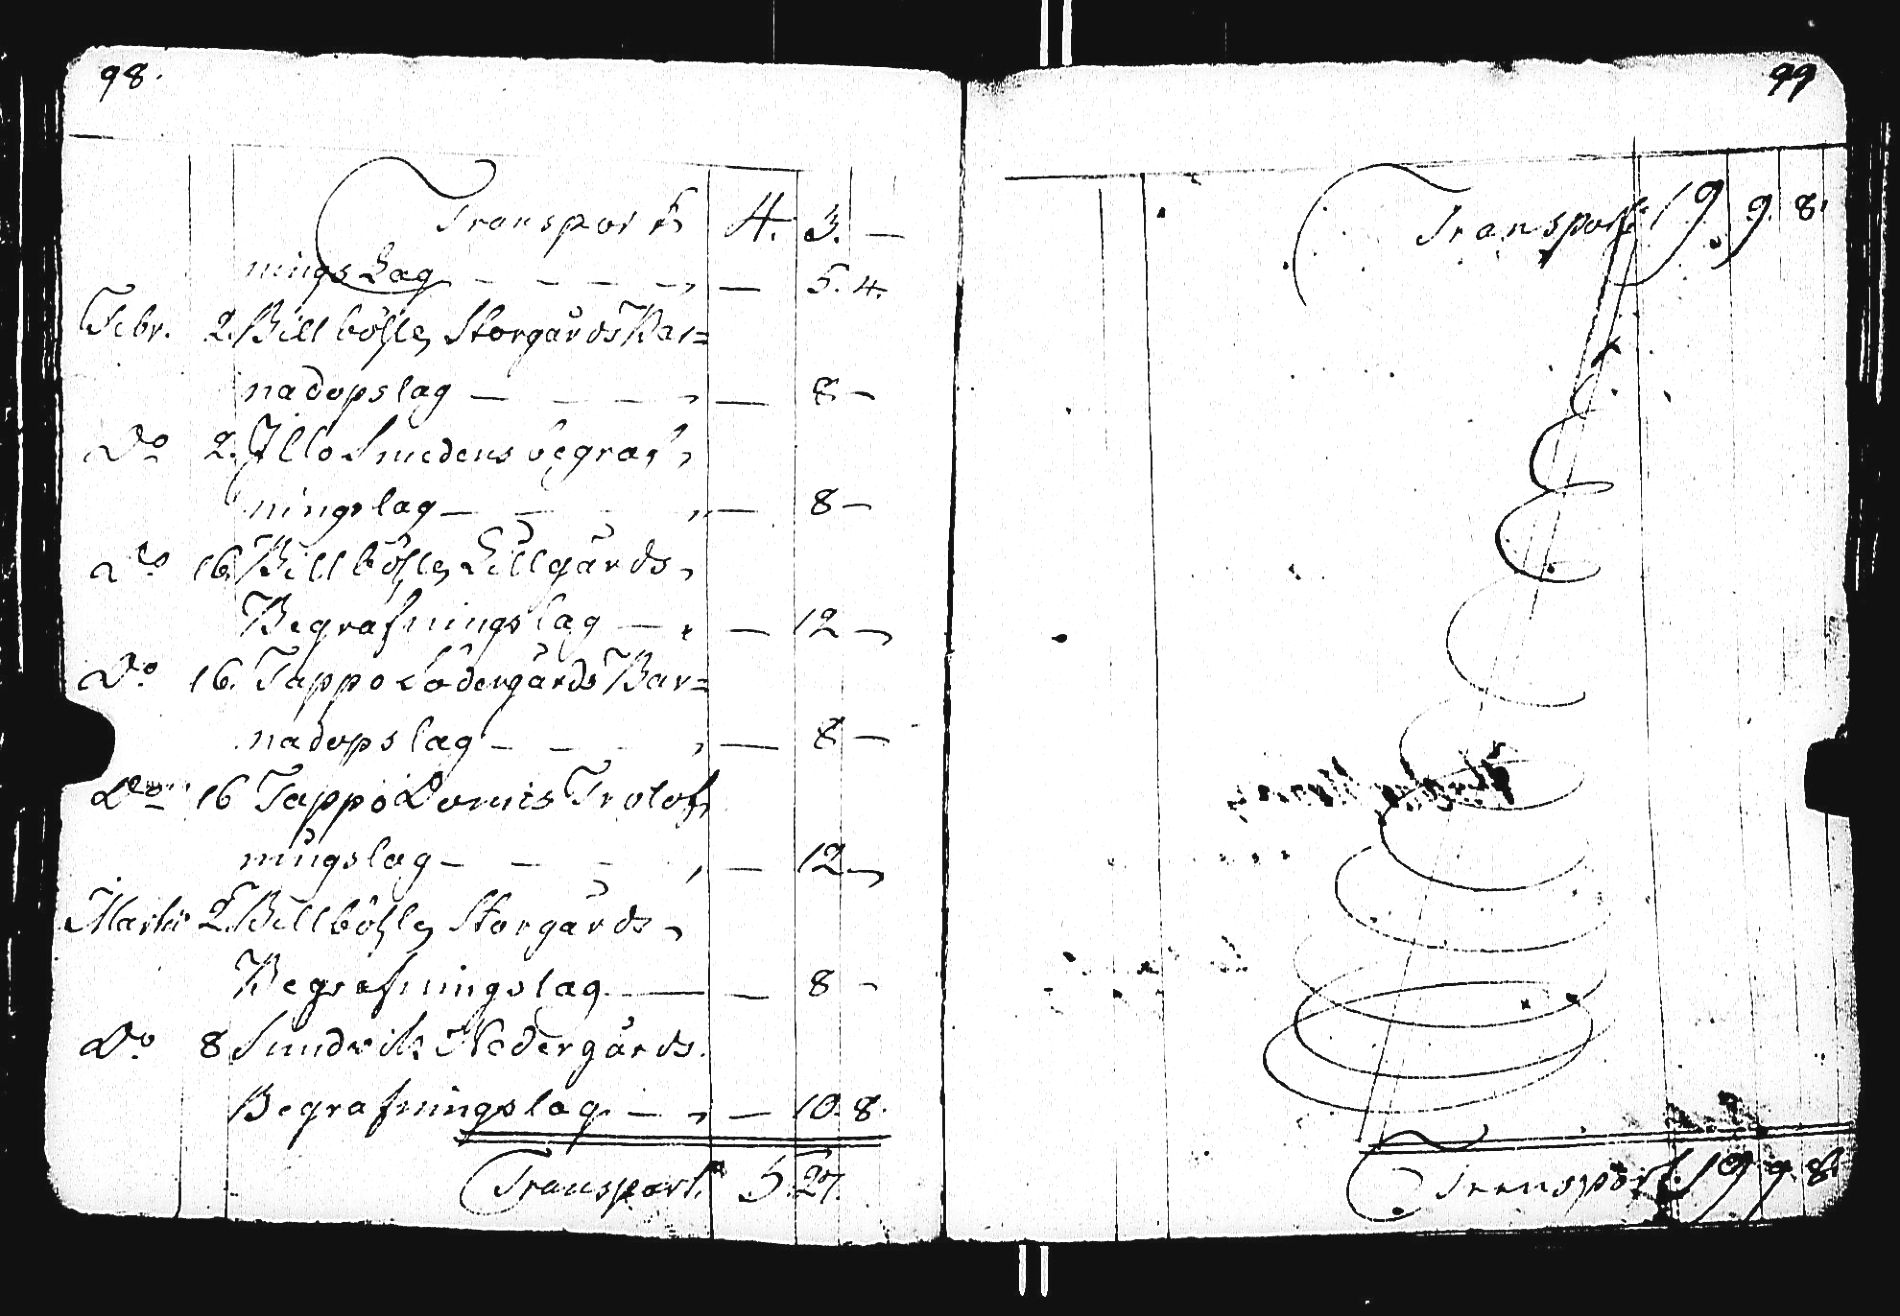 98.
Transport 4. 3. —
ningslag — — — — — 5. 4.
Febr. 2. Billböhle Storgårds Bar=
nadopslag — — — — 8 —
Do 2. Illo Smedens begraf-
ningslag — — — — 8 —
Do 16. Billböhle Lillgårds
Begrafningslag — — 12 —
Do 16. Tappo Södergårds Bar=
nadopslag — — — — 8 —
Do 16 Tappo Trolof-
ningslag — — — — 12 —
Martii 2. Billböhle Storgårds
Begrafningslag — — 8 —
Do 8 Sundvik Nedergårds
Begrafningslag — — 10. 8.
Transport. 5. 27.
99
Transport 19. 9. 8.
Transport. 19 9. 8.